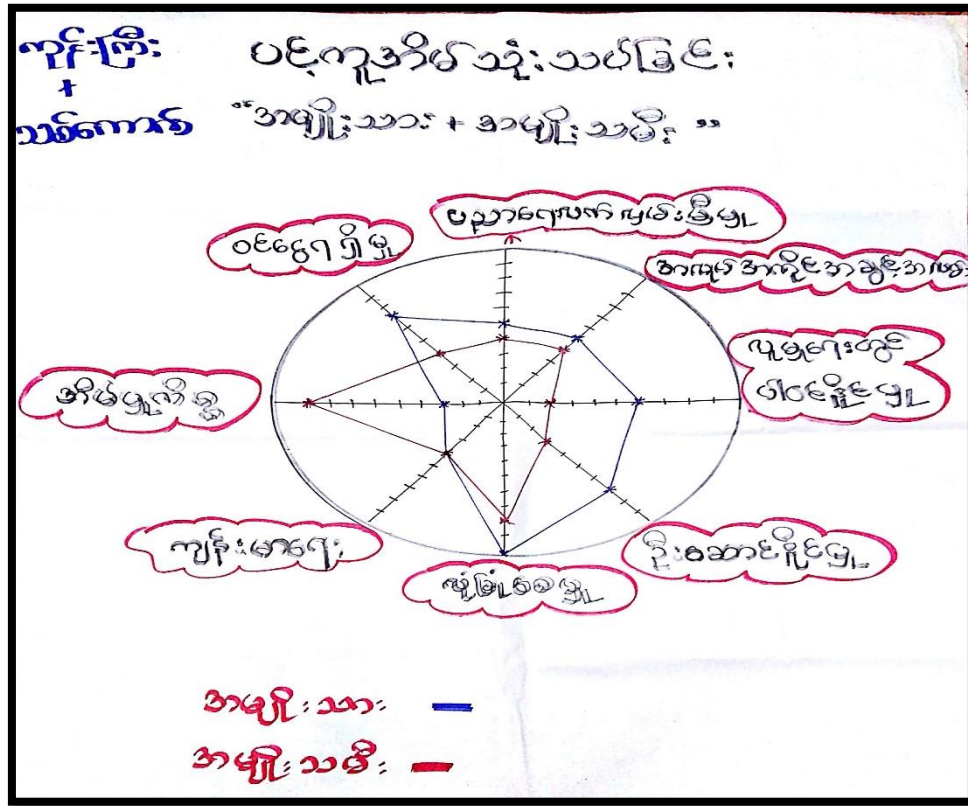 ကုန်းကြီး
+
သစ်ကောက်
ပင့်ကူအိမ် သုံးသပ်ခြင်း
"အမျိုးသား + အမျိုးသမီး"
ပညာရေးလက်လှမ်းမှီမှု
ဝင်ငွေရရှိမှု
အလုပ်အကိုင်အခွင့်အလမ်း
လူမှုရေးတွင်
ပါဝင်နိုင်မှု
အိမ်မှုကိစ္စ
ကျန်းမာရေး
ဦးဆောင်နိုင်မှု
လုံခြုံစေမှု
အမျိုးသား
အမျိုးသမီး